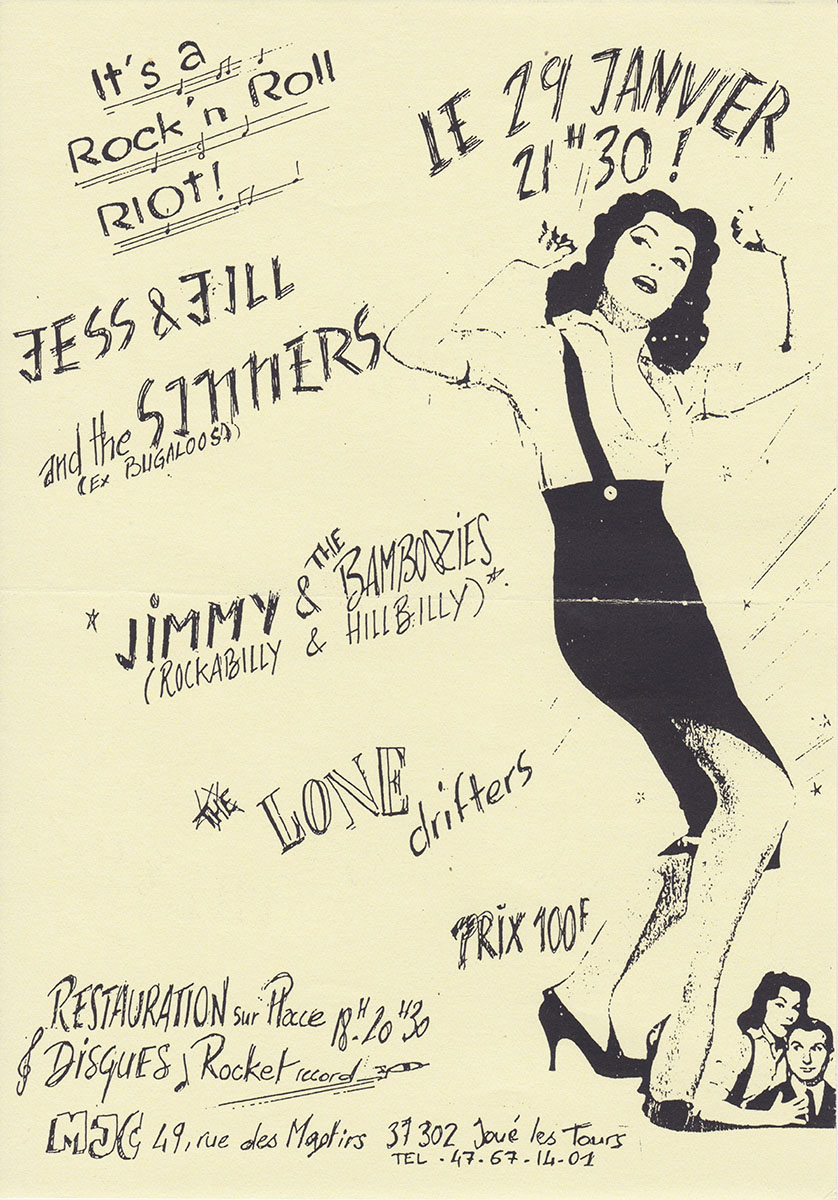 It's a
Rock'n Roll
RIOT!
LE 29 JANVIER
21H30!
JESS & JILL
and the SINNERS
(EX BUGALOOSA)
* JIMMY & THE BAMBOOZIES
(ROCKABILLY & HILLBILLY) *
THE LONE
drifters
PRIX 100F
RESTAURATION sur Place 18H-20H30
DISQUES Rocket record
MJC 49, rue des Martirs 37302 Joué les Tours
TEL . 47-67-14-01